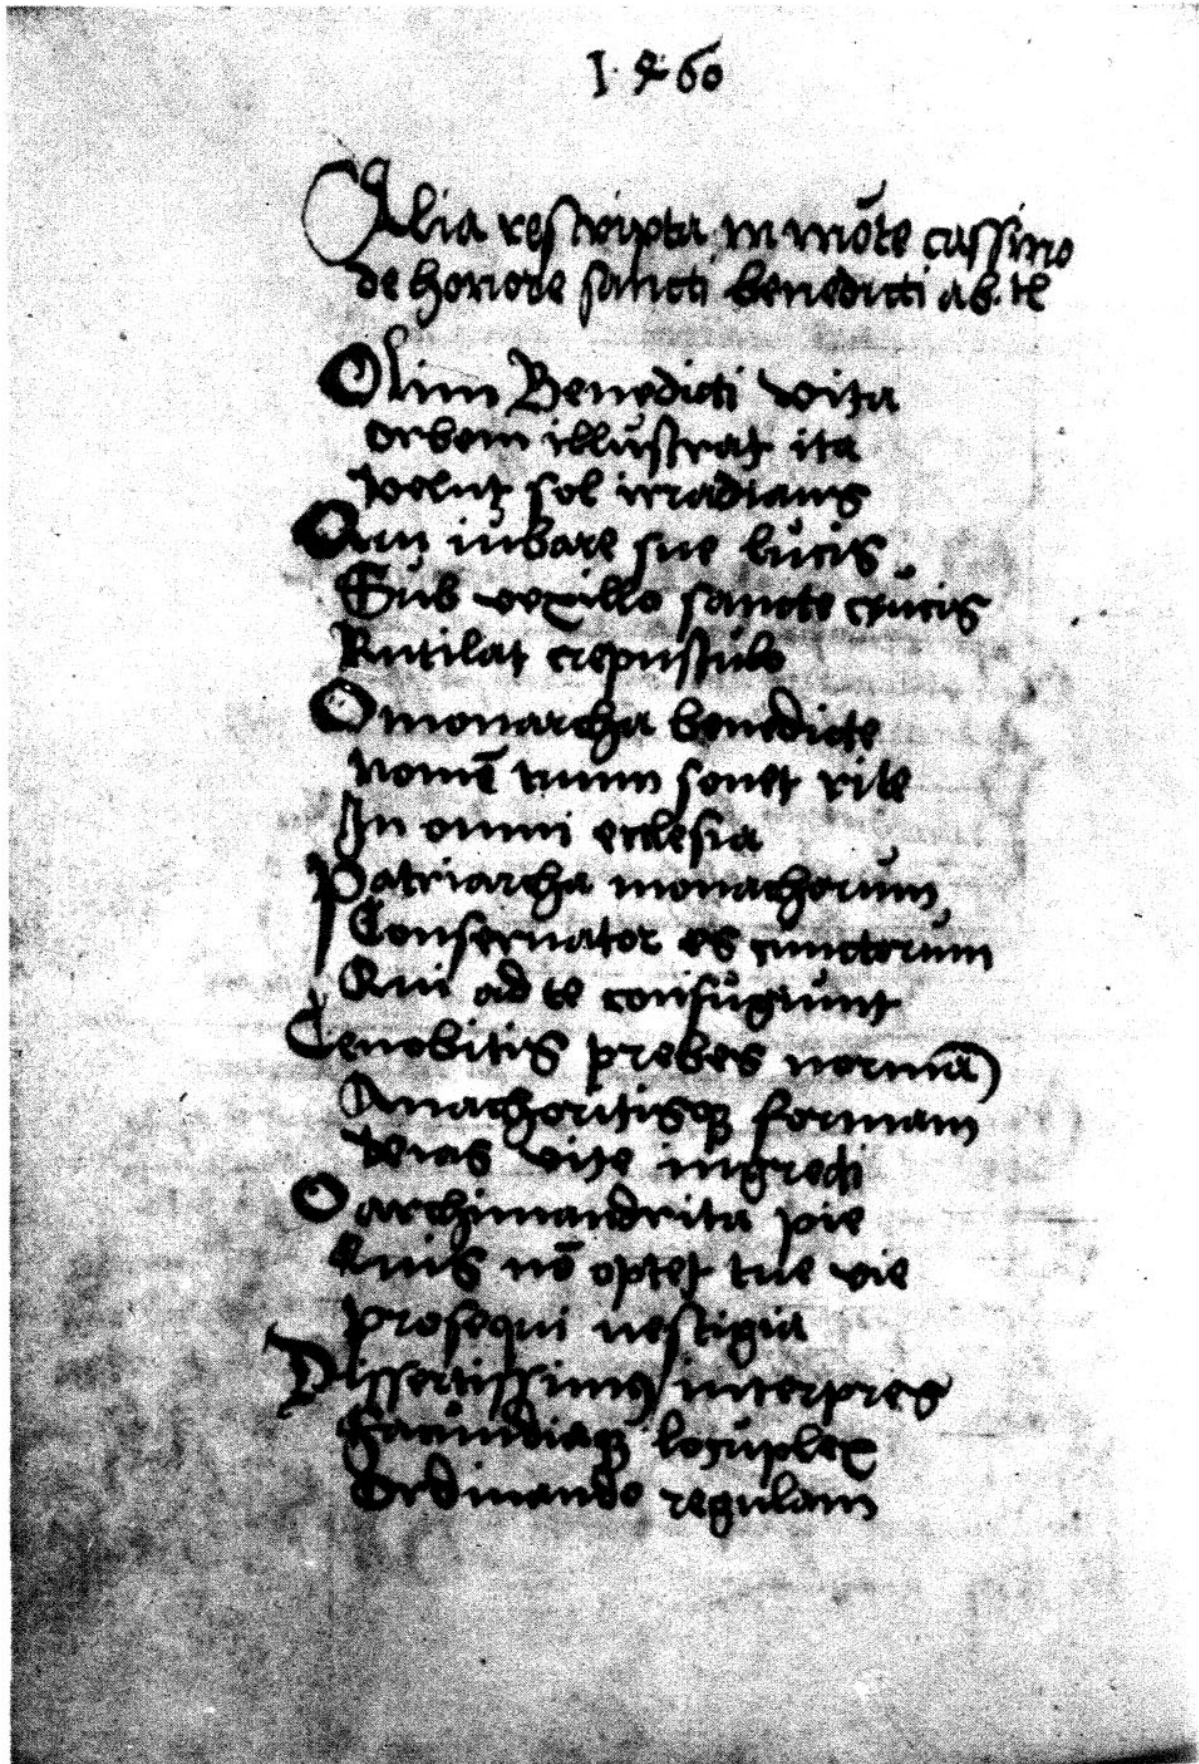 1·460
Alia rescripta in mōte cassino
de honore sancti benedicti ab.
Olim Benedicti vita
orbem illustrat ita
velut sol irradians
Qui iubare sue lucis
Sub vexillo sancte crucis
Rutilat crepusculo
O monarcha benedicte
nomē tuum sonet rite
In omni ecclesia
Patriarcha monachorum
Conservator es cunctorum
Qui ad te confugiunt
Cenobitis prebes normā
Anachoritisqꝫ formam
veras vite ingredi
O archimandrita pie
Quis nō optet tue vie
prosequi vestigia
Dissertissimꝰ interpres
Facundiaqꝫ locuplex
Ordinando regulam